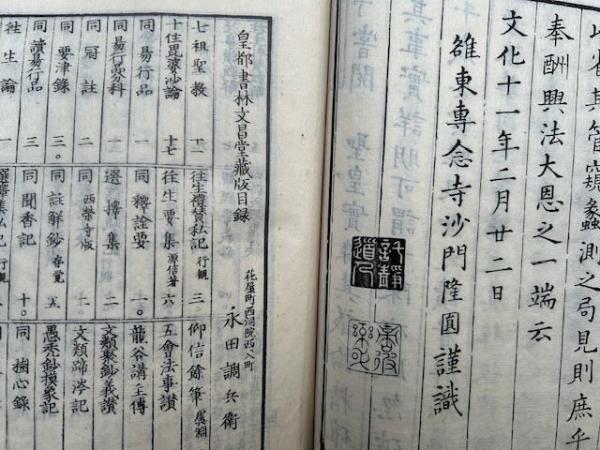 省其管窺蠡測之局見則庶乎
奉酬興法大恩之一端云
文化十一年二月廿二日
雒東專念寺沙門隆圓謹識
皇都書林文昌堂藏版目録
花屋町西洞院西入町
永田調兵衛
七祖聖教
十住毘婆沙論 十七
同易行品 一
同易行品分科 一
同冠註 二
同要津錄 三。
同讀易行品 三
往生論 一
往生禮賛私記 行観 三。
往生要集 源信著 六
同釋詮要 一。
選擇集 二
同 西榮寺版 二
同註解鈔 存覚 五
同聞香記 十。
選擇集私記 行観
仰信餘筆
五會法事讃
龍谷講主傳
文類聚鈔義讃
文類蹄涔記
愚禿鈔摸象記
同掬心錄